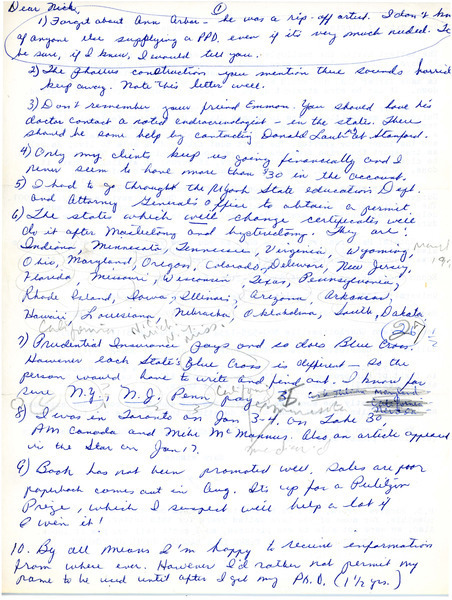 Dear Nick,
①
1) Forget about Ann Arbor - he was a rip-off artist. I don't know
of anyone else supplying a PPD, even if it's very much needed. To
be sure, if I knew, I would tell you.
2) The phallus construction you mention thue sounds horrid
keep away. Note this letter well.
3) Don't remember your friend Emmon. You should have his
doctor contact a noted endocrinologist - in the states. There
should be some help by contacting Donald Laub at Stanford.
4) Only my clients keep us going financially and I
never seem to have more than $30 in the account.
5) I had to go throught the NYork State education Dept.
and Attorney General's Office to obtain a permit.
6) The states which will change certificates will
do it after Mastectomy and hystectomy. They are:
Indiana, Minnesota, Tennessee, Virginia, Wyoming,
Ohio, Maryland, Oregon, Colorado, Delaware, New Jersey,
Florida, Missouri, Wisconsin, Texas, Pennsylvania,
Rhode Island, Iowa, Illinois, Arizona, Arkansas,
Hawaii, Louisiana, Nebraska, Oklahoma, South Dakota
California Mich. Miss.
26
7) Prudential Insurance pays and so does Blue Cross.
However each State's Blue Cross is different - so the
person would have to write and find out. I know for
sure N.Y., N.J. Penn pay.
8) I was in Toronto on Jan 3-4, on Take 30
AM Canada and Mike McManus. Also an article appeared
in the Star on Jan 17.
9) Book has not been promoted well. Sales are poor
paperback comes out in Aug. It's up for a Pulitzer
Prize, which I suspect will help a lot if
I win it!
10. By all means I'm happy to receive information
from where ever. However I'd rather not permit my
name to be used until after I get my Ph.D. (1½ yrs.)